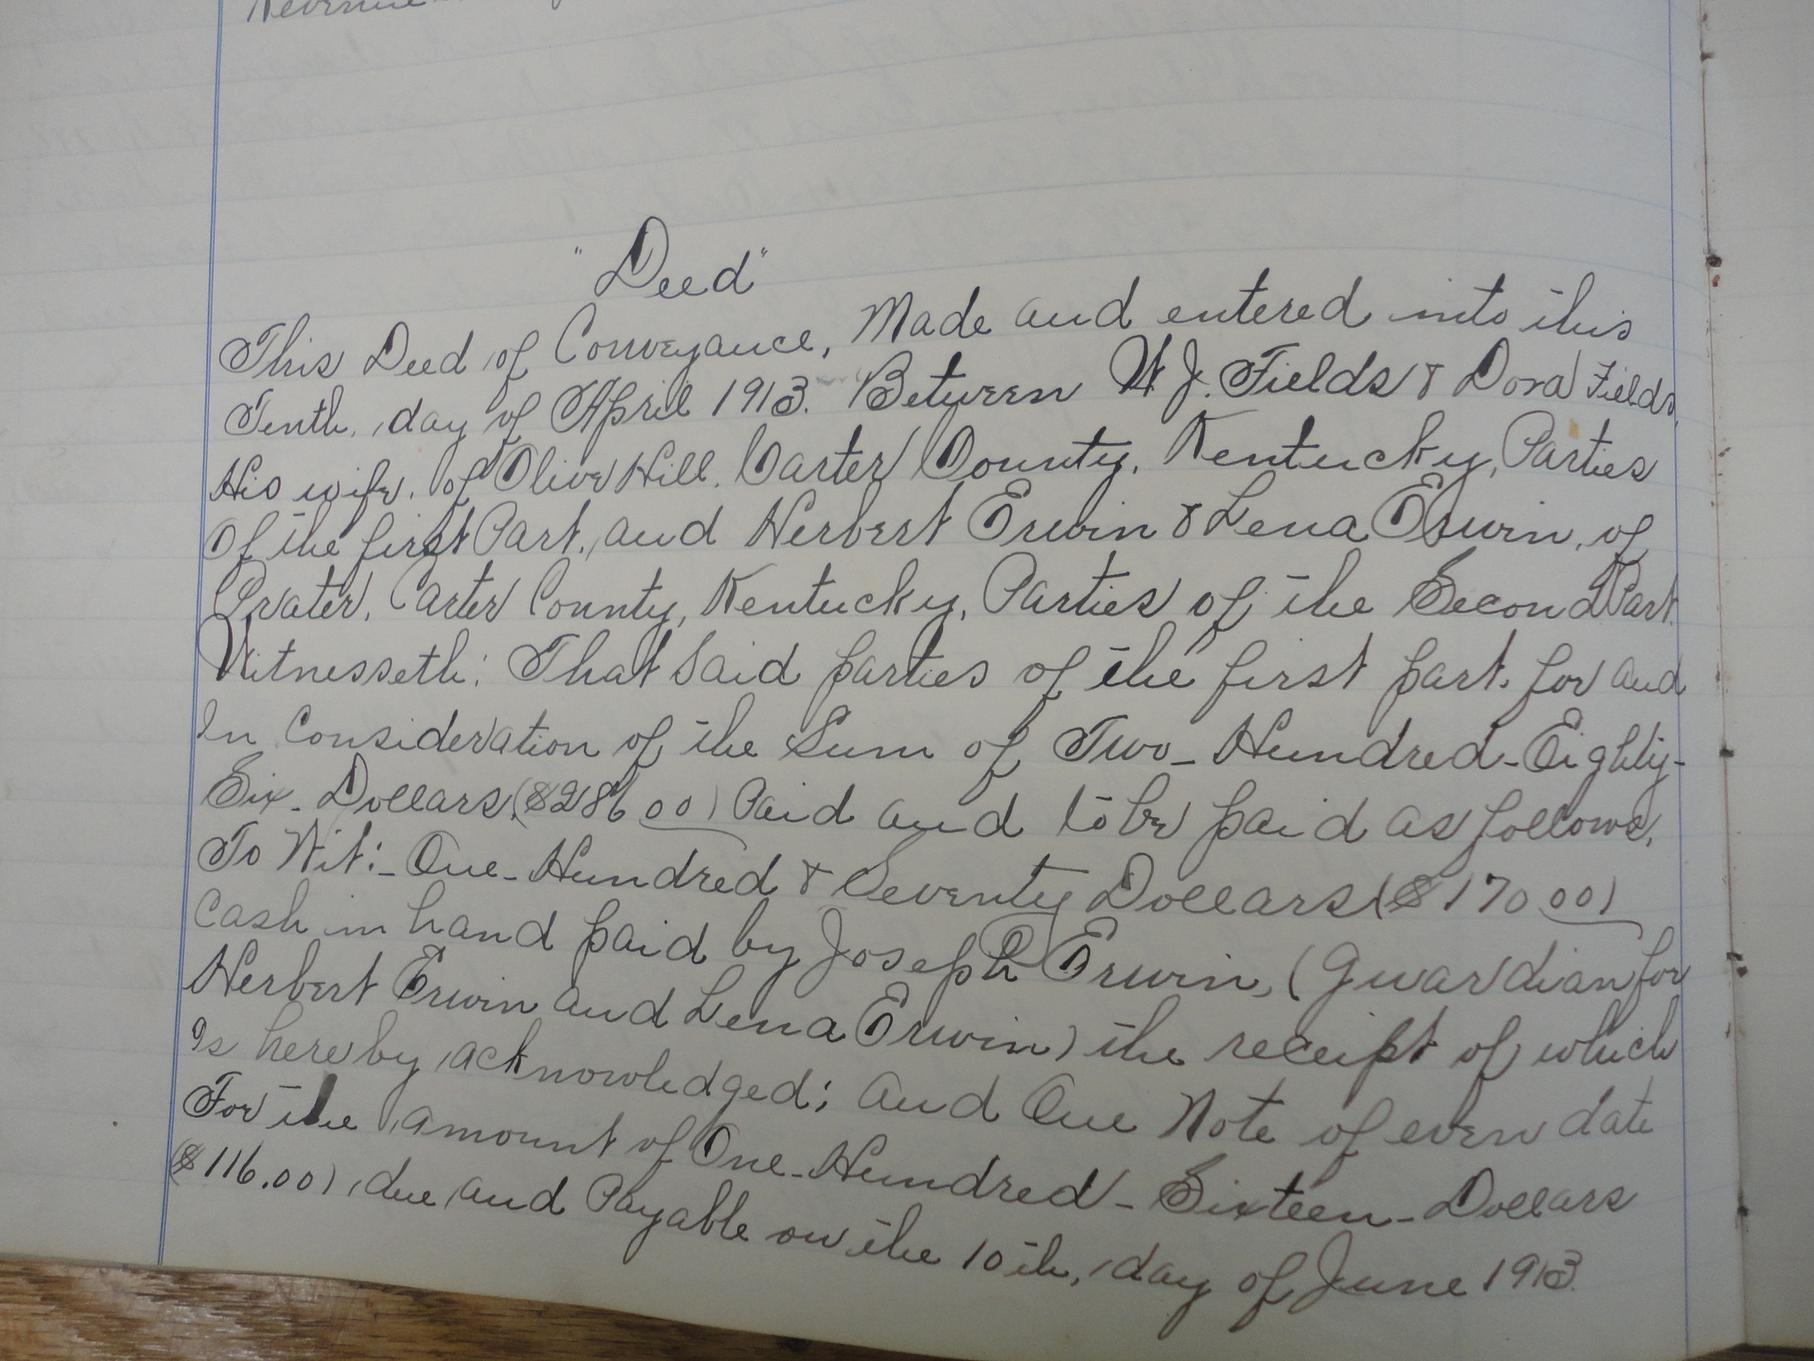 "Deed"
This Deed of Conveyance, Made and entered into this
Tenth, day of April 1913. Between W. J. Fields & Dora Fields,
His wife, of Olive Hill, Carter County, Kentucky, Parties
Of the first Part, and Herbert Erwin & Lena Erwin, of
Prater, Carter County, Kentucky, Parties of the Second Part.
Witnesseth: That Said parties of the first part, for and
In Consideration of the Sum of Two-Hundred-Eighty-
Six-Dollars, ($286 00) Paid and to be paid as follows,
To Wit:- One-Hundred & Seventy Dollars ($170 00)
Cash in hand paid by Joseph Erwin, (Guardian for
Herbert Erwin and Lena Erwin) the receipt of which
Is hereby acknowledged; and One Note of even date
For the amount of One-Hundred-Sixteen-Dollars
($116.00), due and Payable on the 10th, day of June 1913.